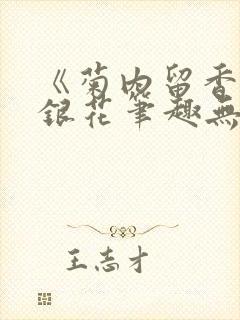 《菊内留香
銀花筆趣無
王志才